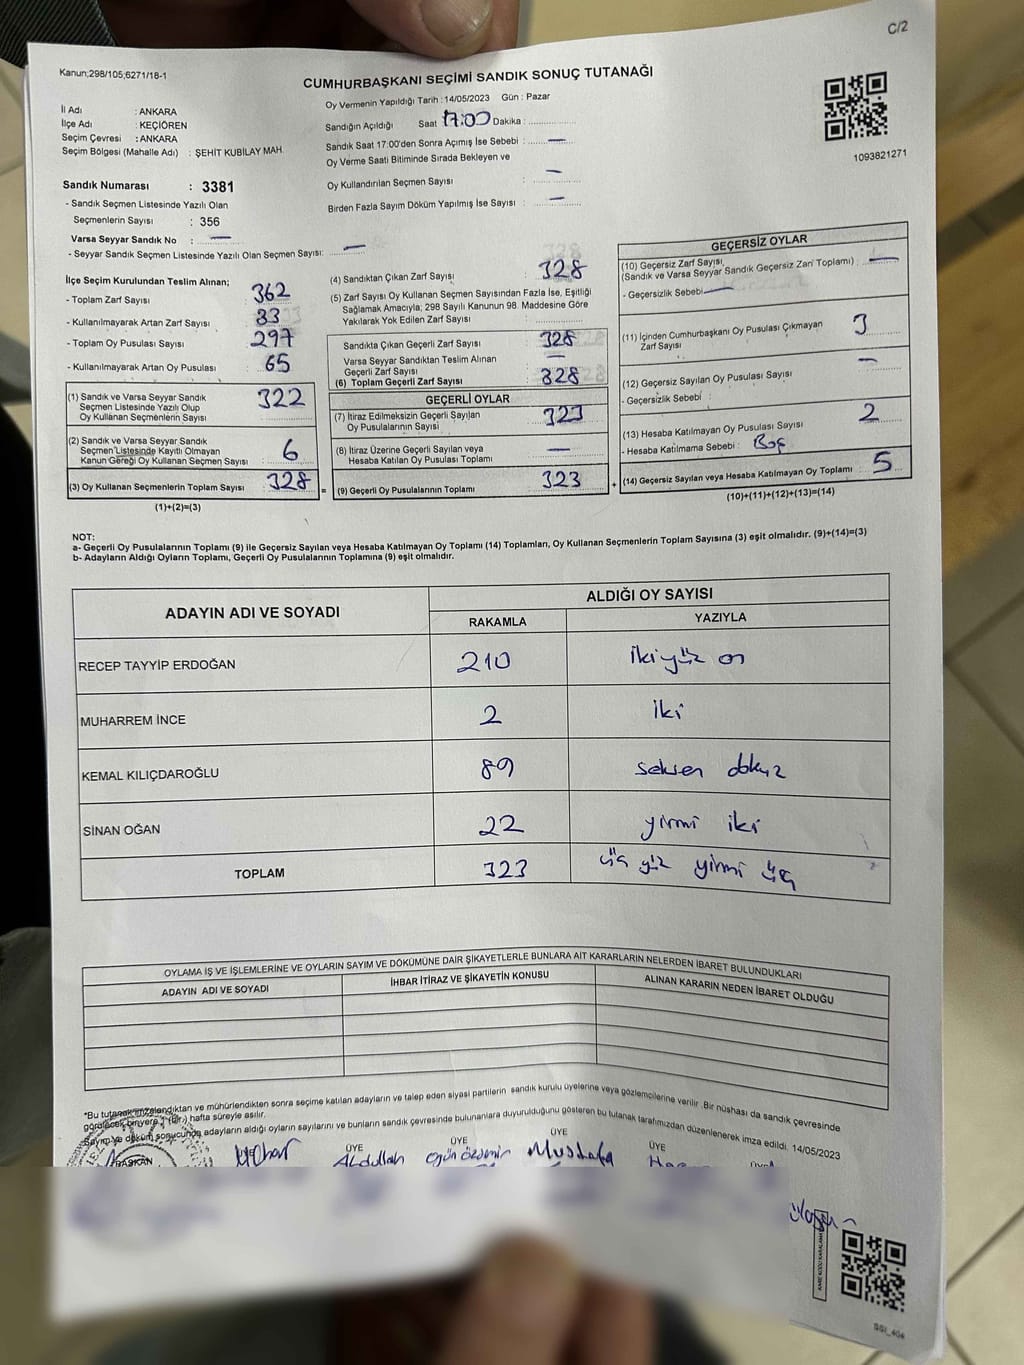 C/2
Kanun;298/105;6271/18-1
CUMHURBAŞKANI SEÇİMİ SANDIK SONUÇ TUTANAĞI
Oy Vermenin Yapıldığı Tarih :14/05/2023 Gün : Pazar
İl Adı : ANKARA
İlçe Adı : KEÇİÖREN
Seçim Çevresi : ANKARA
Seçim Bölgesi (Mahalle Adı) : ŞEHİT KUBİLAY MAH.
Sandığın Açıldığı Saat 17:00 Dakika : ..............
Sandık Saat 17:00'den Sonra Açımış İse Sebebi : —
Oy Verme Saati Bitiminde Sırada Bekleyen ve
Oy Kullandırılan Seçmen Sayısı : —
Birden Fazla Sayım Döküm Yapılmış İse Sayısı : —
1093821271
Sandık Numarası : 3381
- Sandık Seçmen Listesinde Yazılı Olan
Seçmenlerin Sayısı : 356
Varsa Seyyar Sandık No : —
- Seyyar Sandık Seçmen Listesinde Yazılı Olan Seçmen Sayısı: —
İlçe Seçim Kurulundan Teslim Alınan;
- Toplam Zarf Sayısı 362
- Kullanılmayarak Artan Zarf Sayısı 33
- Toplam Oy Pusulası Sayısı 297
- Kullanılmayarak Artan Oy Pusulası 65
(1) Sandık ve Varsa Seyyar Sandık
Seçmen Listesinde Yazılı Olup
Oy Kullanan Seçmenlerin Sayısı 322
(2) Sandık ve Varsa Seyyar Sandık
Seçmen Listesinde Kayıtlı Olmayan
Kanun Gereği Oy Kullanan Seçmen Sayısı 6
(3) Oy Kullanan Seçmenlerin Toplam Sayısı 328 =
(1)+(2)=(3)
(4) Sandıktan Çıkan Zarf Sayısı : 328
(5) Zarf Sayısı Oy Kullanan Seçmen Sayısından Fazla İse, Eşitliği
Sağlamak Amacıyla; 298 Sayılı Kanunun 98. Maddesine Göre
Yakılarak Yok Edilen Zarf Sayısı : ..............
Sandıkta Çıkan Geçerli Zarf Sayısı 328
Varsa Seyyar Sandıktan Teslim Alınan
Geçerli Zarf Sayısı —
(6) Toplam Geçerli Zarf Sayısı 328
GEÇERLİ OYLAR
(7) İtiraz Edilmeksizin Geçerli Sayılan
Oy Pusulalarının Sayısı 323
(8) İtiraz Üzerine Geçerli Sayılan veya
Hesaba Katılan Oy Pusulası Toplamı —
(9) Geçerli Oy Pusulalarının Toplamı 323 +
GEÇERSİZ OYLAR
(10) Geçersiz Zarf Sayısı,
(Sandık ve Varsa Seyyar Sandık Geçersiz Zarf Toplamı) : —
- Geçersizlik Sebebi —
(11) İçinden Cumhurbaşkanı Oy Pusulası Çıkmayan
Zarf Sayısı 3
(12) Geçersiz Sayılan Oy Pusulası Sayısı —
- Geçersizlik Sebebi :
(13) Hesaba Katılmayan Oy Pusulası Sayısı 2
- Hesaba Katılmama Sebebi : Boş
(14) Geçersiz Sayılan veya Hesaba Katılmayan Oy Toplamı 5
(10)+(11)+(12)+(13)=(14)
NOT:
a- Geçerli Oy Pusulalarının Toplamı (9) ile Geçersiz Sayılan veya Hesaba Katılmayan Oy Toplamı (14) Toplamları, Oy Kullanan Seçmenlerin Toplam Sayısına (3) eşit olmalıdır. (9)+(14)=(3)
b- Adayların Aldığı Oyların Toplamı, Geçerli Oy Pusulalarının Toplamına (9) eşit olmalıdır.
ADAYIN ADI VE SOYADI
ALDIĞI OY SAYISI
RAKAMLA YAZIYLA
RECEP TAYYİP ERDOĞAN 210 ikiyüz on
MUHARREM İNCE 2 iki
KEMAL KILIÇDAROĞLU 89 seksen dokuz
SİNAN OĞAN 22 yirmi iki
TOPLAM 323 üç yüz yirmi üç
OYLAMA İŞ VE İŞLEMLERİNE VE OYLARIN SAYIM VE DÖKÜMÜNE DAİR ŞİKAYETLERLE BUNLARA AİT KARARLARIN NELERDEN İBARET BULUNDUKLARI
ADAYIN ADI VE SOYADI İHBAR İTİRAZ VE ŞİKAYETİN KONUSU ALINAN KARARIN NEDEN İBARET OLDUĞU
*Bu tutanak imzalandıktan ve mühürlendikten sonra seçime katılan adayların ve talep eden siyasi partilerin sandık kurulu üyelerine veya gözlemcilerine verilir .Bir nüshası da sandık çevresinde
görülecek bir yere 1 (bir) hafta süreyle asılır.
Sayım ve döküm sonucunda adayların aldığı oyların sayılarını ve bunların sandık çevresinde bulunanlara duyurulduğunu gösteren bu tutanak tarafımızdan düzenlenerek imza edildi. 14/05/2023
BAŞKAN ÜYE ÜYE ÜYE ÜYE
Abdullah Ogün Özdemir Mustafa